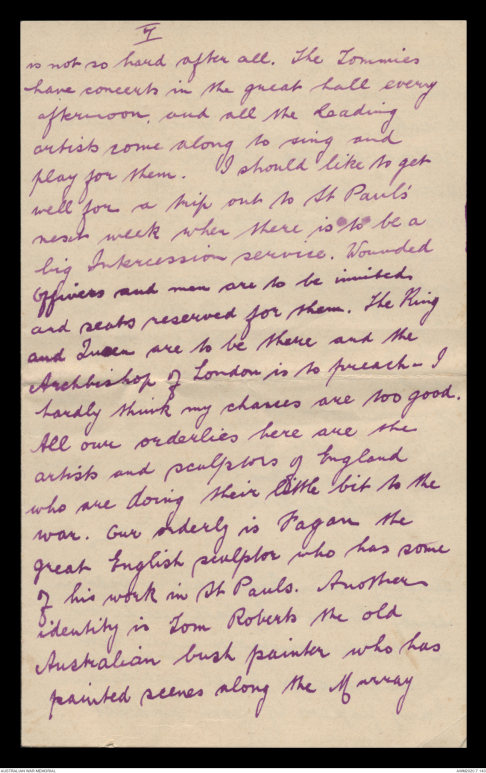 7
is not so hard after all. The Tommies
have concerts in the great hall every
afternoon, and all the leading
artists come along to sing and
play for them. I should like to get
well for a trip out to St Paul's
next week when there is to be a
big Intercession service. Wounded
Officers and men are to be invited
and seats reserved for them. The King
and Queen are to be there and the
Archbishop of London is to preach – I
hardly think my chances are too good.
All our orderlies here are the
artists and sculptors of England
who are doing their little bit to the
war. Our orderly is Fagan the
great English sculptor who has some
of his work in St Pauls. Another
identity is Tom Roberts the old
Australian bush painter who has
painted scenes along the Murray
AUSTRALIAN WAR MEMORIAL